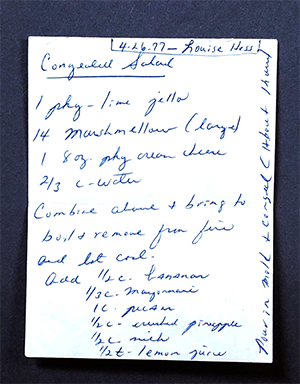 4-26-77 - Louise Hess
Congealed Salad
1 pkg - lime jello
14 marshmellow (large)
1 8 oz. pkg cream cheese
2/3 c - water
Combine above & bring to
boil & remove from fire
and let cool.
Add 1/2 c. bananas
1/3 c. mayonnaise
1 c. pecan
1/2 c - crushed pineapple
1/2 c. milk
1/2 t - lemon juice
Pour in mold & congeal (About 1 hour)